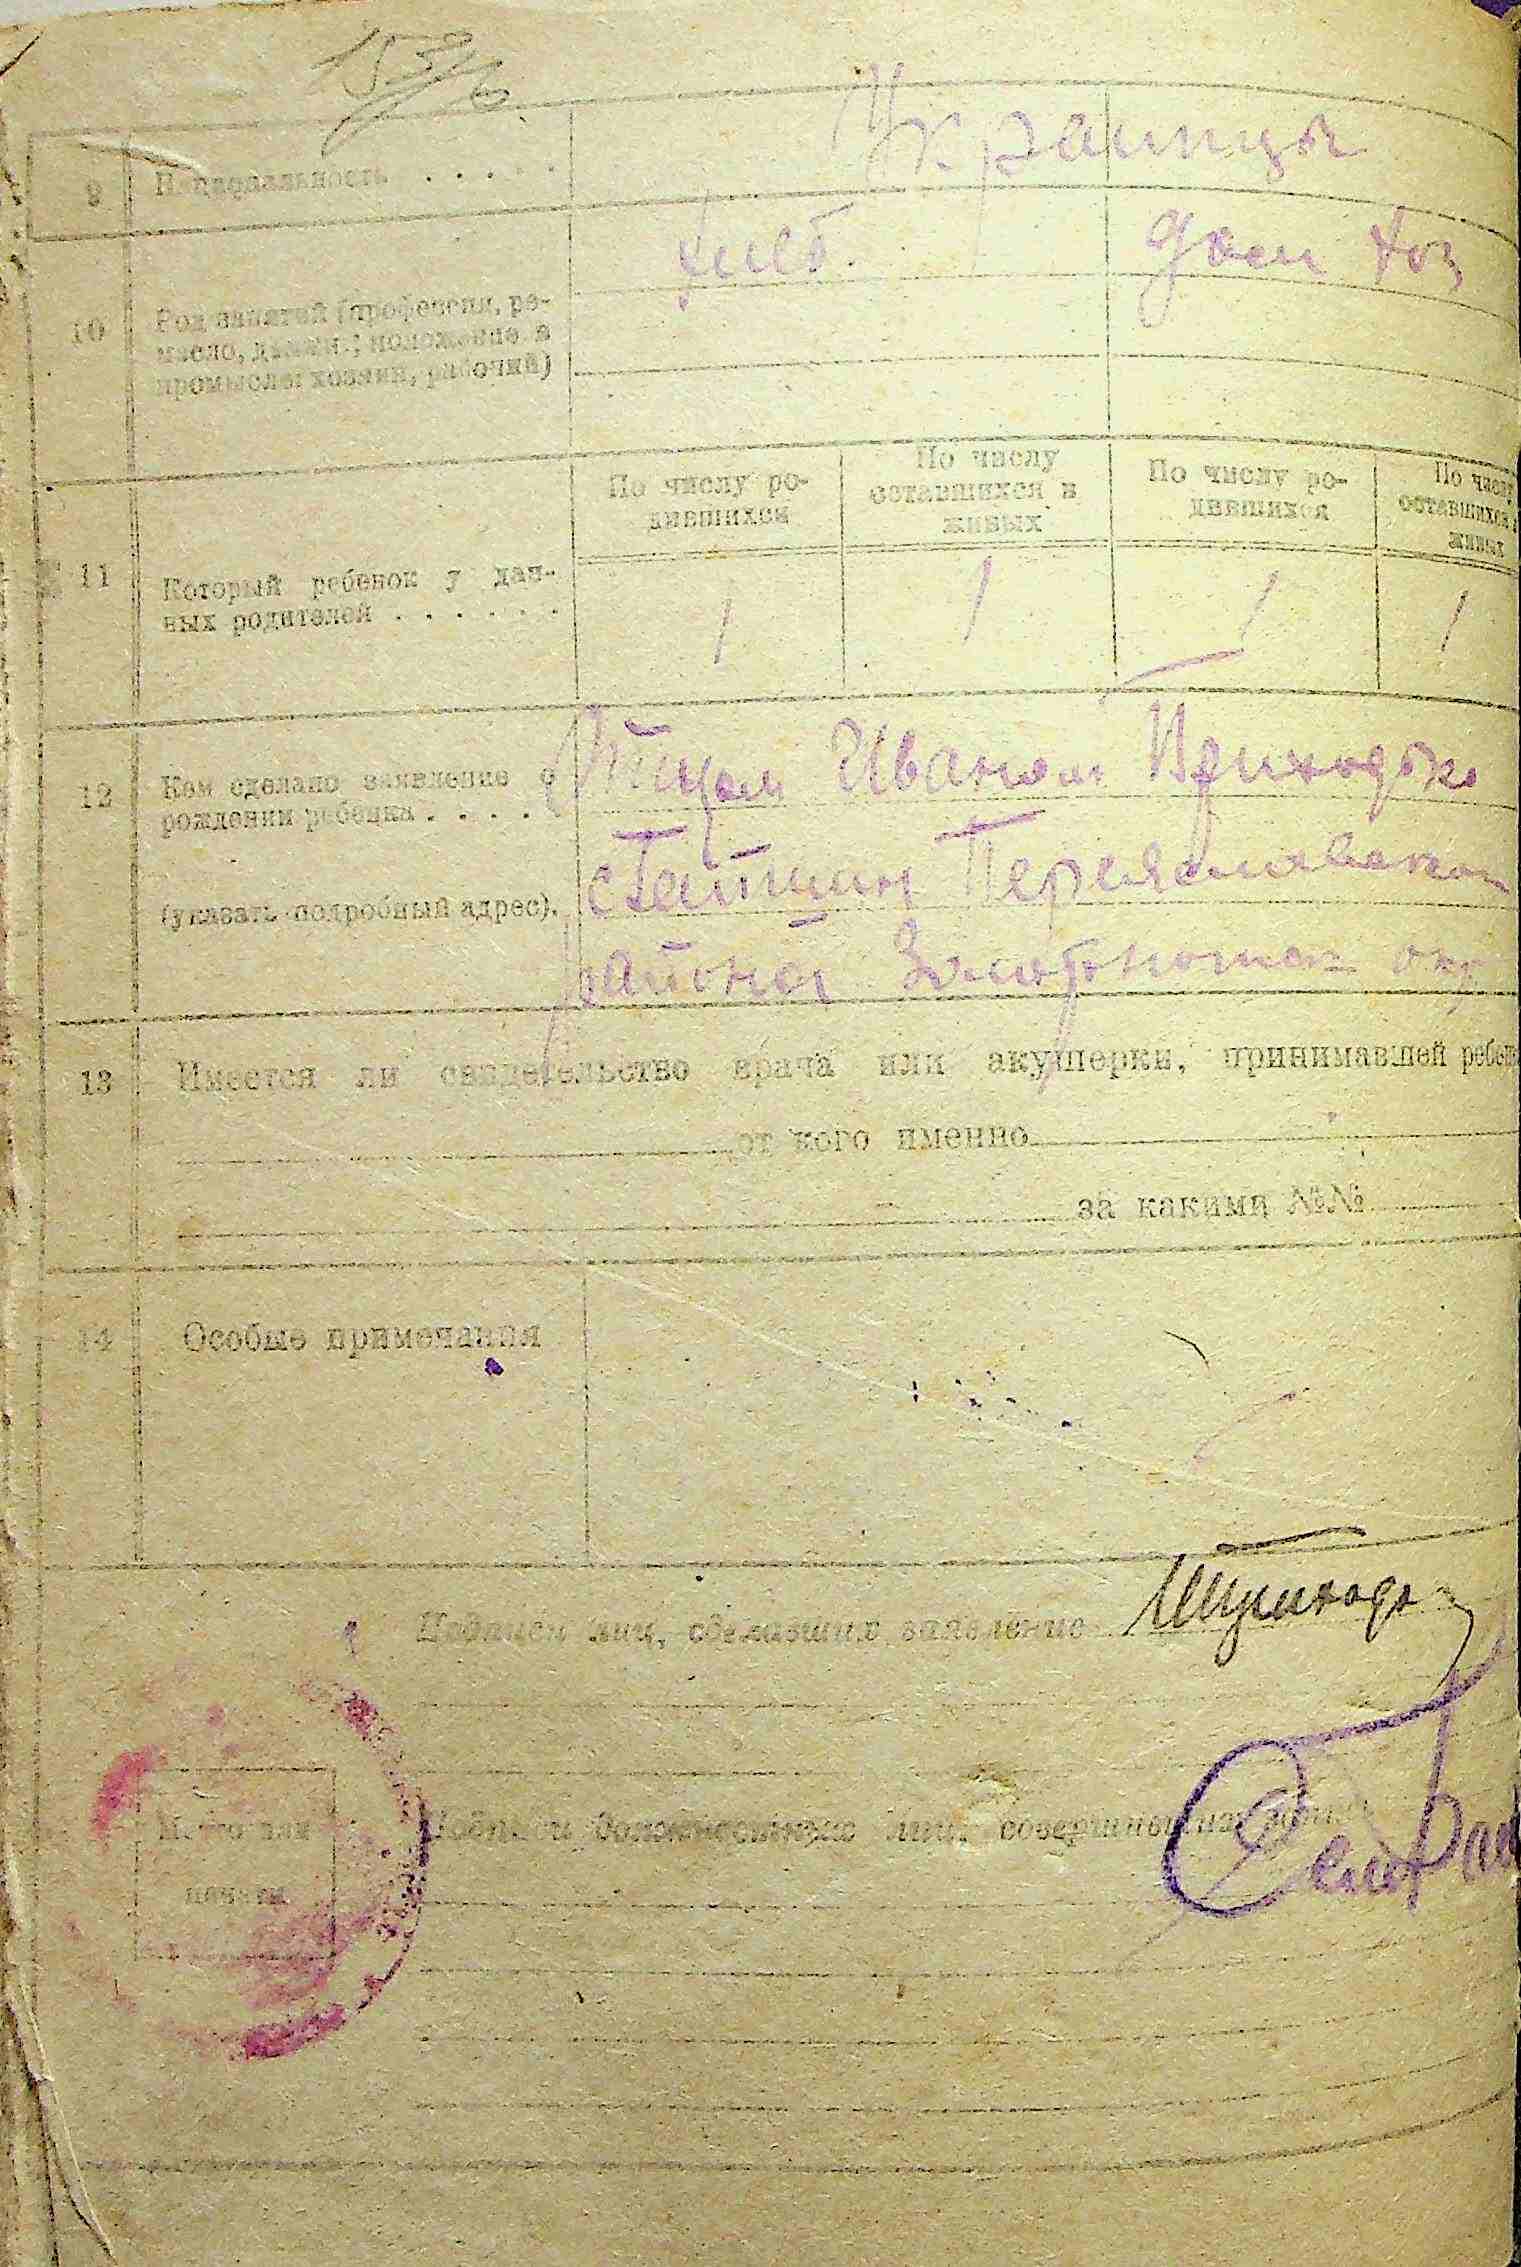 9 Национальность . . . . . Украинцы
10 Род занятий (профессия, ре-
месло, должн.; положение в
промысле: хозяин, рабочий)
хлеб. дом хоз
По числу ро-
дившихся
По числу
оставшихся в
живых
По числу ро-
дившихся
По числу
оставшихся в
живых
11 Который ребенок у дан-
ных родителей . . . . . .
1 1 1 1
12 Кем сделано заявление о
рождении ребенка . . . .
(указать подробный адрес).
Отцом Иваном Приходько
Переяславском
района Золотоношск окр
13 Имеется ли свидетельство врача или акушерки, принимавшей ребен
от кого именно
за какими №№
14 Особые примечания
Подписи лиц, сделавших заявление
Место для
печати
Подписи должностных лиц, совершивших